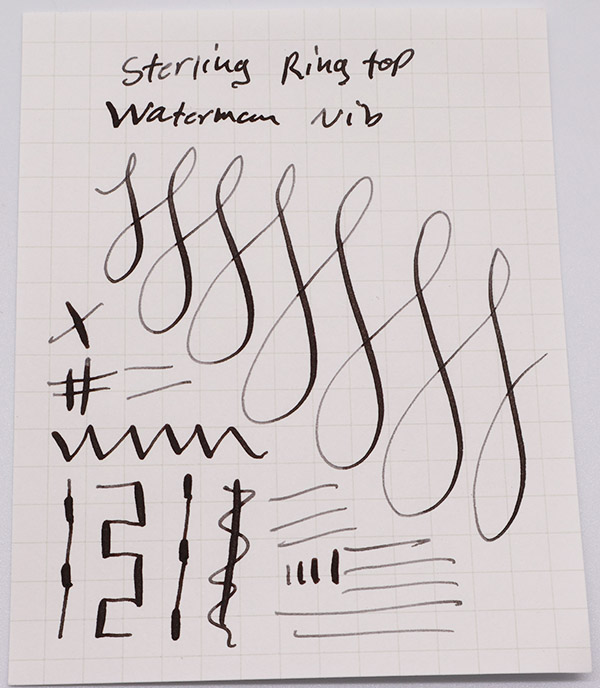 Sterling Ring top
Waterman Nib